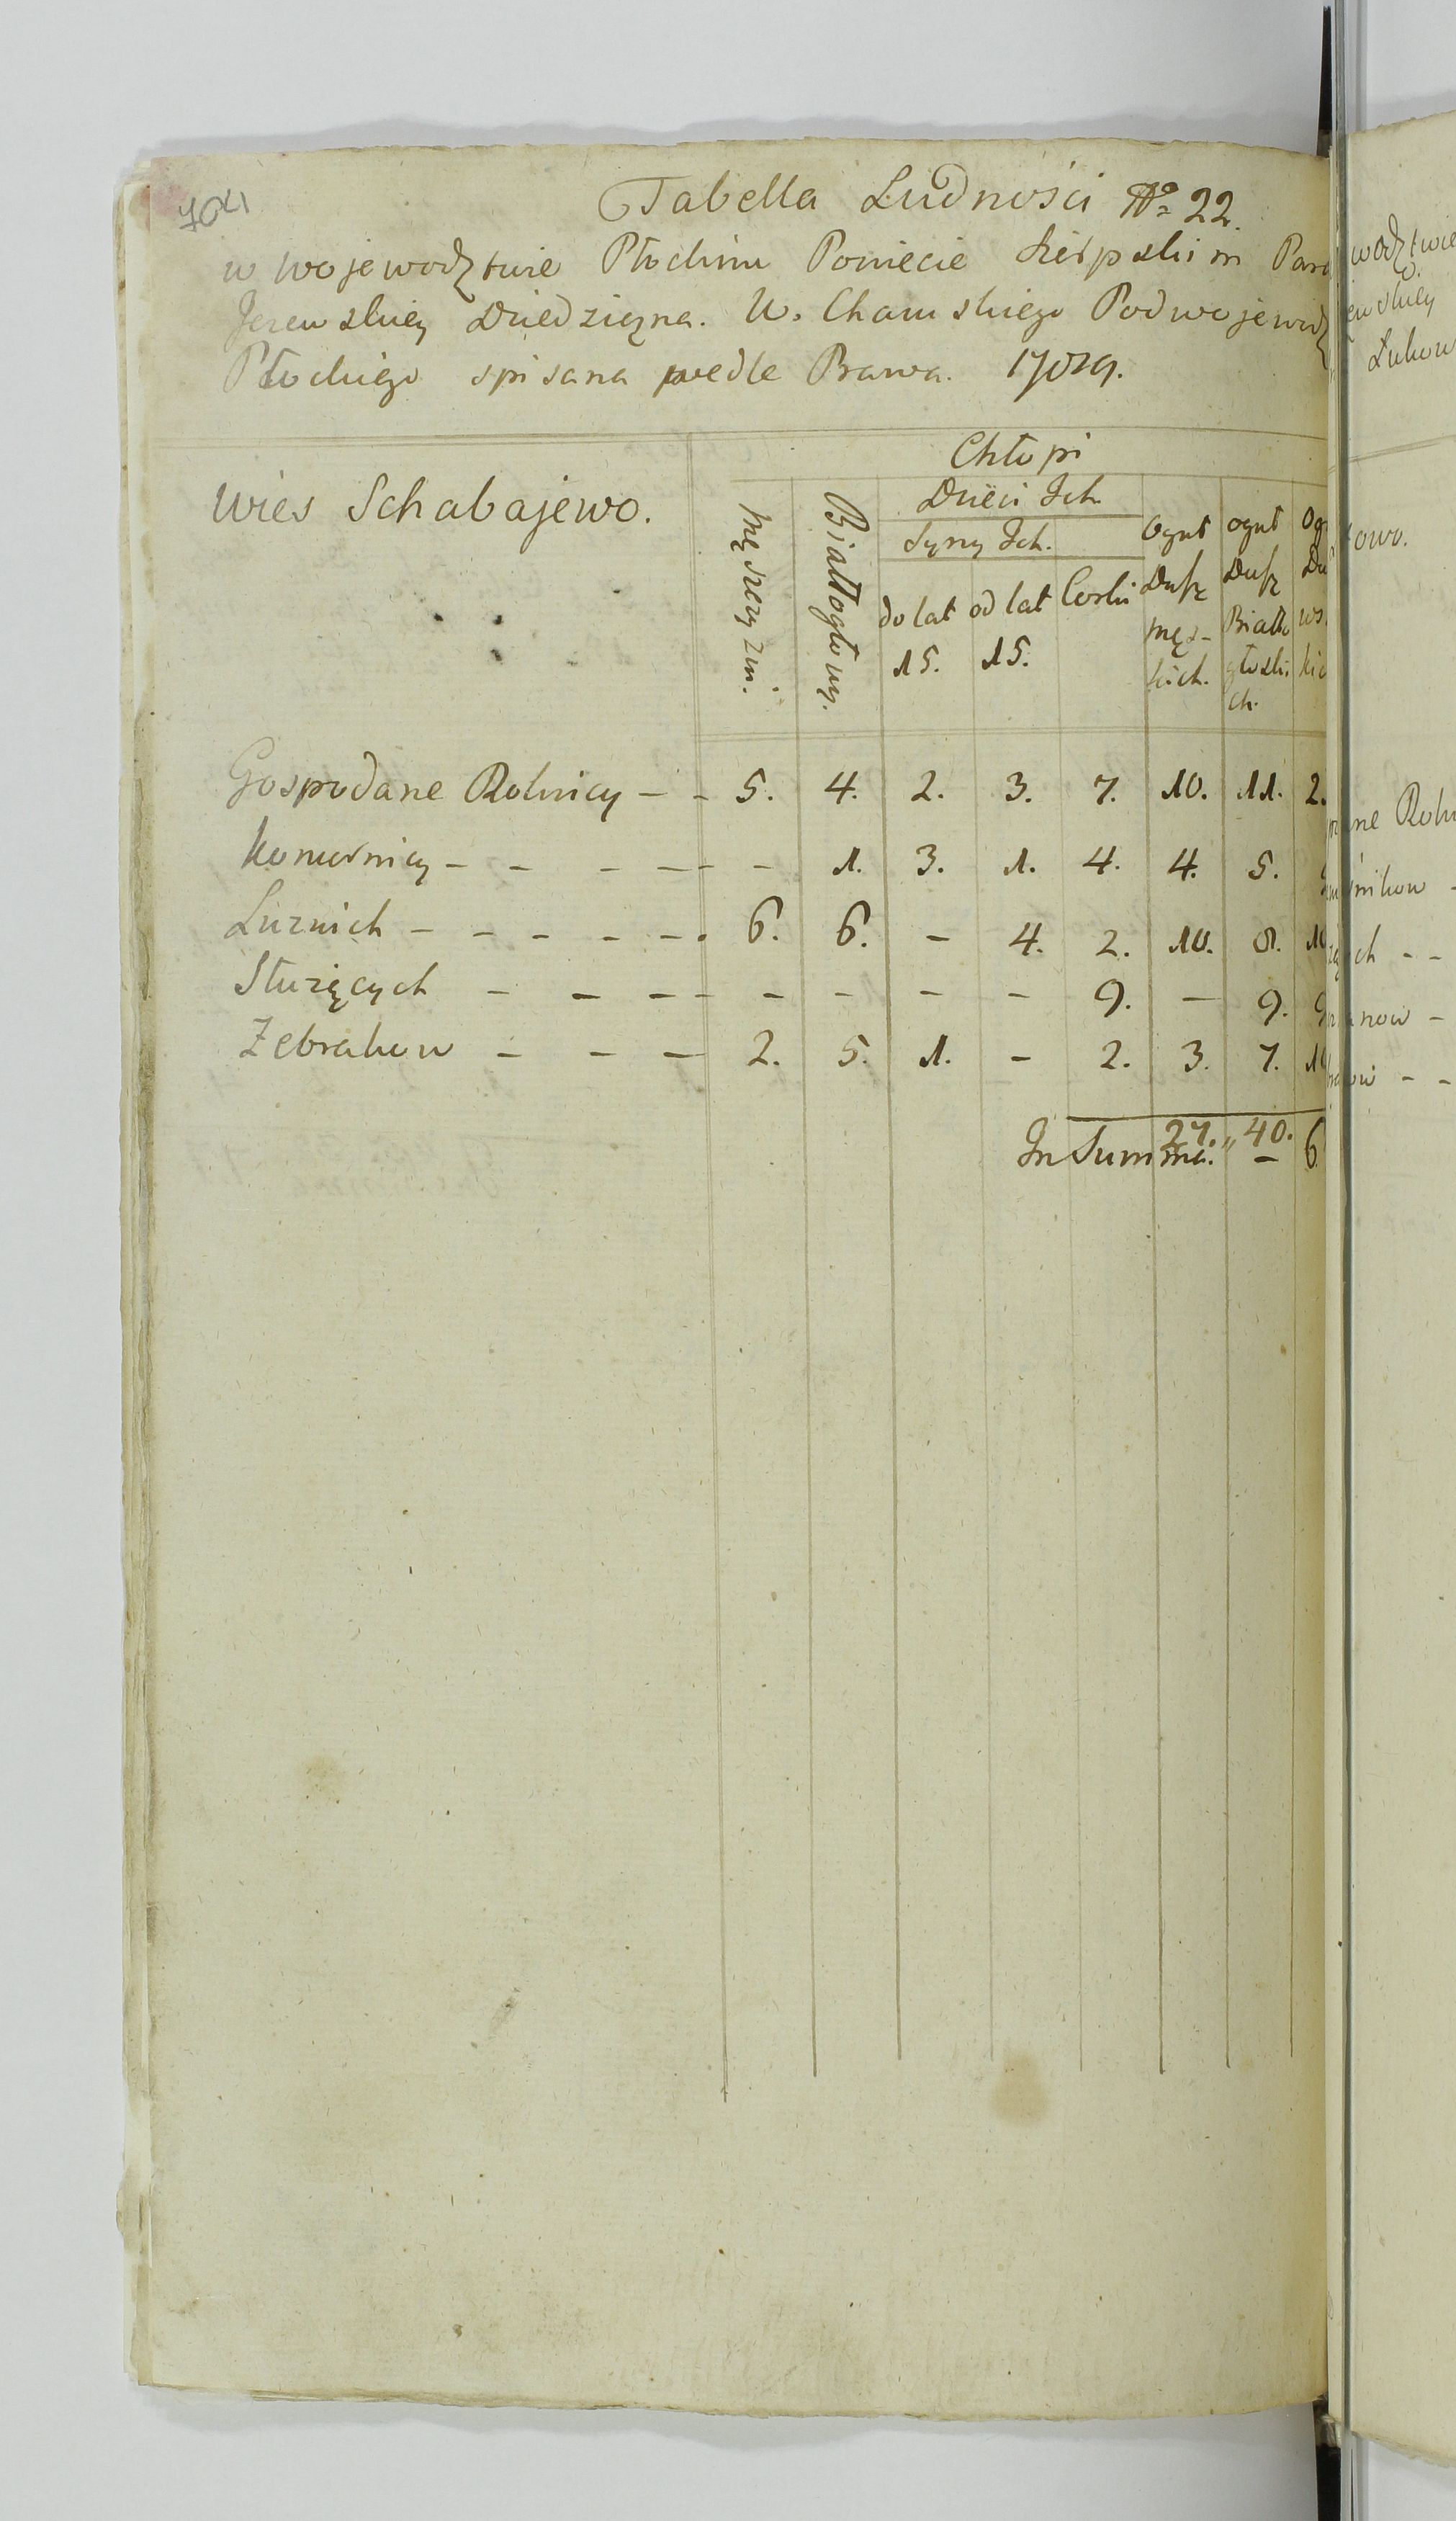 704
Tabella Ludności No 22.
w Wojewodztwie Płockim Powiecie Sierpskim Para
Jerewskiey Dziedziczna. W. Chamskiego Podwojewodz
Płockiego spisana wedle Prawa. 1789.
Wies Schabajewo.
Chłopi
Męszczyzni.
Białłogłowy.
Dzieci Ich
Syny Ich.
do lat 15.
od lat 15.
Corki
Oguł Dusz męskich.
oguł Dusz Białłogłoskich.
Gospodarze Rolnicy - - 5. 4. 2. 3. 7. 10. 11. 2.
Komornicy - - - - - - 1. 3. 1. 4. 4. 5.
Luznich - - - - - - 6. 6. - 4. 2. 10. 8. 1
Służących - - - - - - - - 9. - 9. 9
Zebrakow - - - 2. 5. 1. - 2. 3. 7. 1
In Summa. 27. " 40. 6